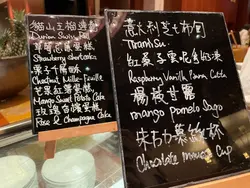 猫山王榴蓮卷
Durian Swiss Roll
草莓花蛋糕
Strawberry Shortcake
栗子千層酥
Chestnut Mille-Feuille
芒果紅薯蛋糕
Mango Sweet Potato Cake
玫瑰香檳蛋糕
Rose & Champagne Cake
意大利芝士布甸
Tiramisu
紅桑子雲呢拿奶凍
Raspberry Vanilla Panna Cotta
楊枝甘露
mango pomelo Sago
朱古力慕絲杯
Chocolate mousse Cup